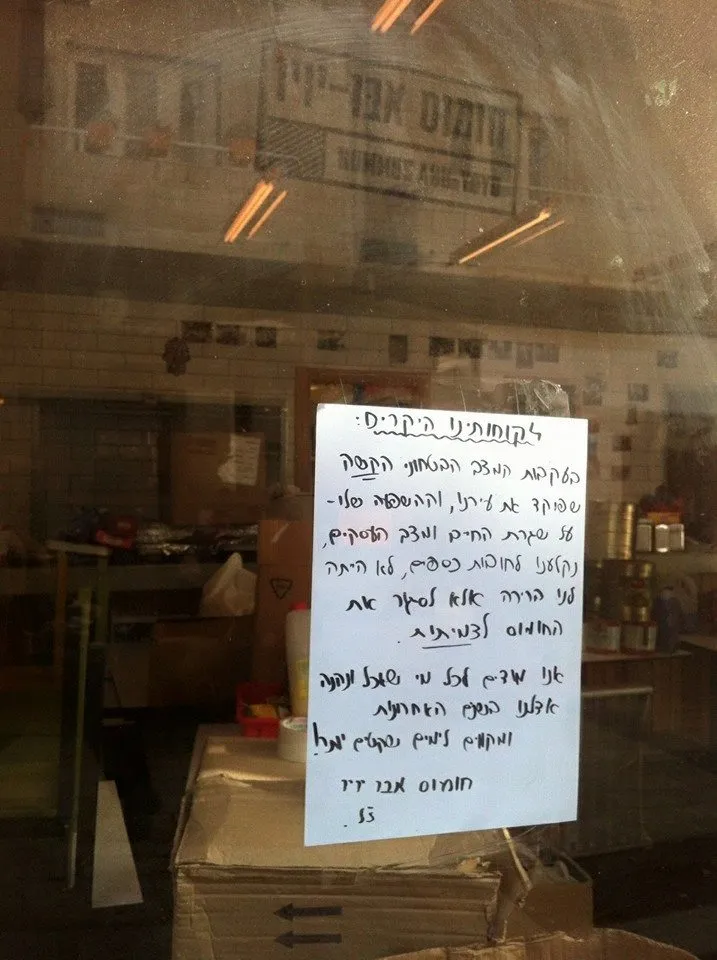 חומוס אבו-זיזי
לקוחותינו היקרים:
בעקבות המצב הבטחוני הקשה
שפוקד את עירנו, וההשפעה שלו -
על שגרת החיים ומצב העסקים,
נקלענו לחובות כספים, לא היתה
לנו ברירה אלא לסגור את
החומוס לצמיתות.
אנו מודים לכל מי שאכל ונהנה
אצלנו בשנים האחרונות
ומקווים לימים שקטים יותר!
חומוס אבו זיזי
ז״ל.